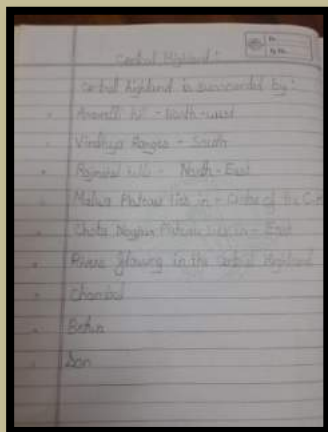 Central Highland :
Central highland is surrounded by :
Aravalli hill - North-west
Vindhya Ranges - South
Rajmahal hills - North-East
Malwa Plateau lies in - Centre of the C.H
Chota Nagpur Plateau lies in - East
Rivers flowing in the central Highland
Chambal
Betwa
Son